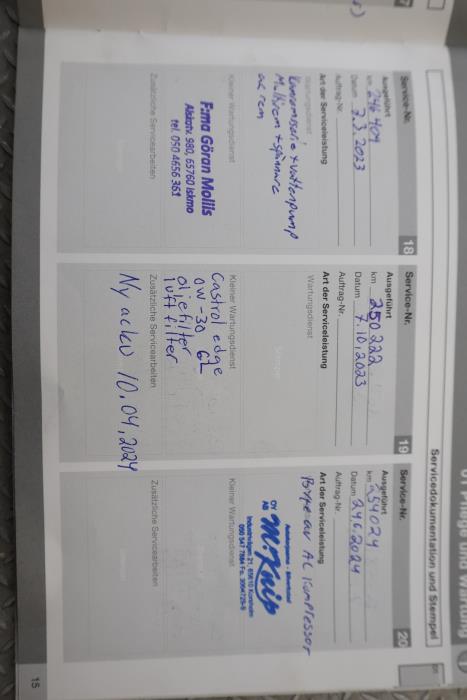 Servicedokumentation und Stempel
Service-Nr. 18
Ausgeführt
km 246 404
Datum 3.3.2023
Auftrag-Nr.
Art der Serviceleistung
Wartungsdienst
Kamremsserie + vattenpump
Multirem + spännare
ac rem
Kleiner Wartungsdienst
F:ma Göran Mollis
Alskatv. 980, 65760 Iskmo
tel. 050 4656 361
Zusätzliche Servicearbeiten
Service-Nr. 19
Ausgeführt
km 250 222
Datum 7.10,2023
Auftrag-Nr.
Art der Serviceleistung
Wartungsdienst
Kleiner Wartungsdienst
Castrol edge
0W-30 6L
oljefilter
luftfilter
Zusätzliche Servicearbeiten
Ny acku 10.04.2024
Service-Nr. 20
Ausgeführt
km 254024
Datum 24.6.2024
Auftrag-Nr.
Art der Serviceleistung
Byte av AC kompressor
OY AB McKnip
Kleiner Wartungsdienst
Zusätzliche Servicearbeiten
15